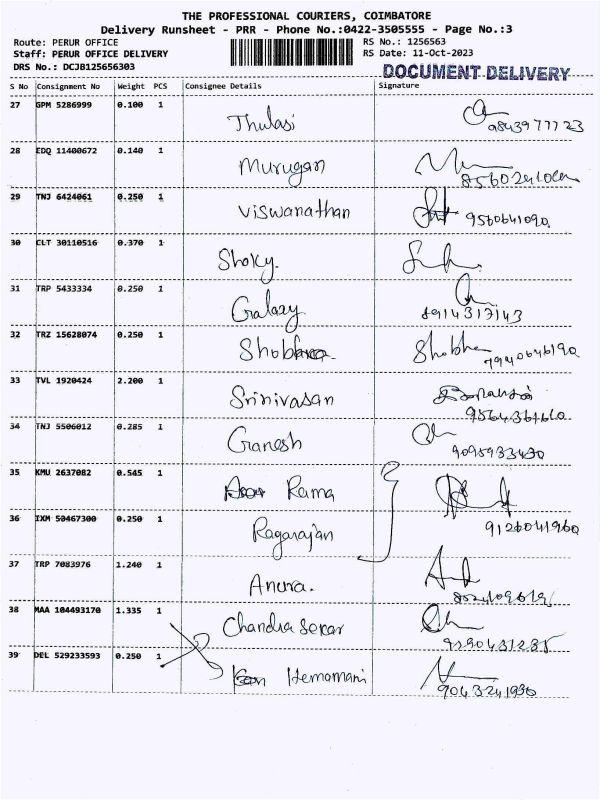 THE PROFESSIONAL COURIERS, COIMBATORE
Delivery Runsheet - PRR - Phone No.:0422-3505555 - Page No.:3
Route: PERUR OFFICE RS No.: 1256563
Staff: PERUR OFFICE DELIVERY RS Date: 11-Oct-2023
DRS No.: DCJB125656303 DOCUMENT DELIVERY
S No Consignment No Weight PCS Consignee Details Signature
27 GPM 5286999 0.100 1 Thulasi 9843977723
28 EDQ 11400672 0.140 1 Murugan
29 TNJ 6424061 0.250 1 Viswanathan 9560641090
30 CLT 30110516 0.370 1 Shoky.
31 TRP 5433334 0.250 1 Galaxy 8914317143
32 TRZ 15628074 0.250 1 Shobhana Shobha 7940646190
33 TVL 1920424 2.200 1 Srinivasan
34 TNJ 5506012 0.285 1 Ganesh 9095933430
35 KMU 2637082 0.545 1 Rama
36 IXM 50467300 0.250 1 Ragarajan 9126041960
37 TRP 7083976 1.240 1 Anura.
38 MAA 104493170 1.335 1 Chandra Sekar
39 DEL 529233593 0.250 1 Hemamani 9043241990